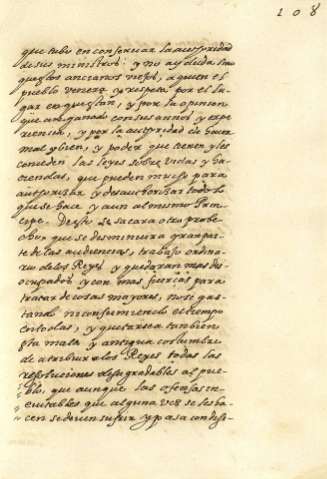 108
que tubo en conseruar la auctoridad
de sus ministros: y no ay duda sino
que los ancianos viejos, a quien el
pueblo venera y respeta por el lu-
gar en que están, y por la opinion
que an ganado con sus años y expe
riencia, y por la auctoridad de hacer
mal y bien, y poder que tienen y les
conceden las leyes sobre vidas y ha-
ciendas, que pueden mucho para
autorizar y desautorizar todo lo
que se hace y aun al mismo Prin-
cipe. De esto se sacara otro probe-
cho, que se desminuira gran par-
te de las audiencias, trabajo ordina-
rio de los Reyes y quedaran mas des-
ocupados y con mas fuerças para
tratar de cosas mayores, no se gas-
tando ni consumiendo el tiempo
en todas, y quitarsea tambien
esta mala y antigua costumbre
de atribuir a los Reyes todas las
resoluciones desagradables al pue-
blo, que aunque las ofensas in-
euitables que alguna vez se les ha-
cen se deuen sufrir y pasa con